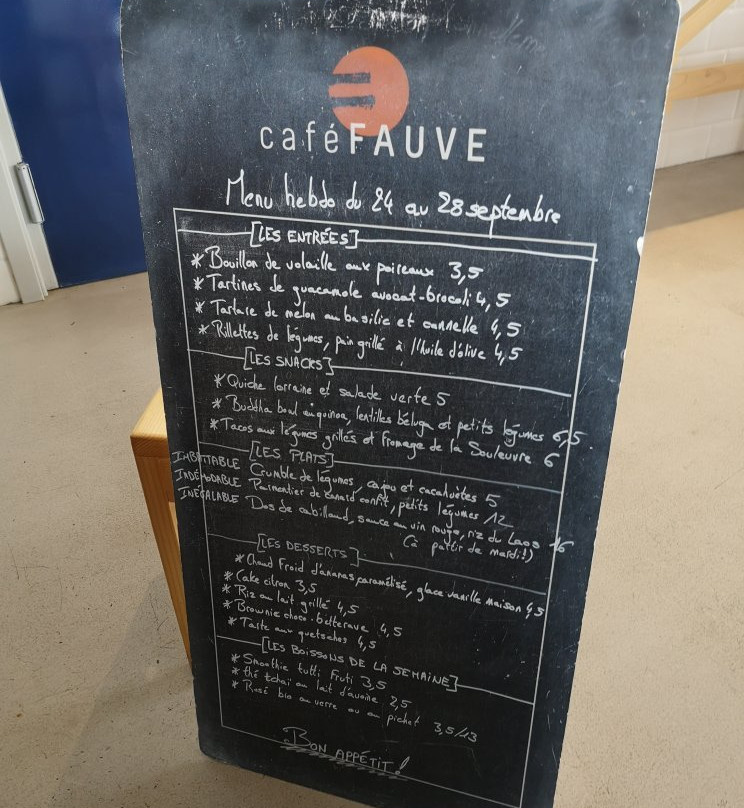 caféFAUVE
Menu hebdo du 24 au 28 septembre
[LES ENTRÉES]
* Bouillon de volaille aux poireaux 3,5
* Tartines de guacamole avocat-brocoli 4,5
* Tartare de melon au basilic et cannelle 4,5
* Rillettes de légumes, pain grillé à l'huile d'olive 4,5
[LES SNACKS]
* Quiche lorraine et salade verte 5
* Buddha bowl au quinoa, lentilles béluga et petits légumes 6,5
* Tacos aux légumes grillés et fromage de la Souleuvre 6
[LES PLATS]
IMBATTABLE Crumble de légumes, cajou et cacahuètes 5
INDÉMODABLE Parmentier de canard confit, petits légumes 12
INÉGALABLE Dos de cabillaud, sauce au vin rouge, riz du Laos 16
(à partir de mardi!)
[LES DESSERTS]
* Chaud Froid d'ananas caramélisé, glace vanille maison 4,5
* Cake citron 3,5
* Riz au lait grillé 4,5
* Brownie choco-betterave 4,5
* Tarte aux quetsches 4,5
[LES BOISSONS DE LA SEMAINE]
* Smoothie tutti Fruti 3,5
* thé tchaï au lait d'avoine 2,5
* Rosé bio au verre ou au pichet 3,5/13
BON APPÉTIT!